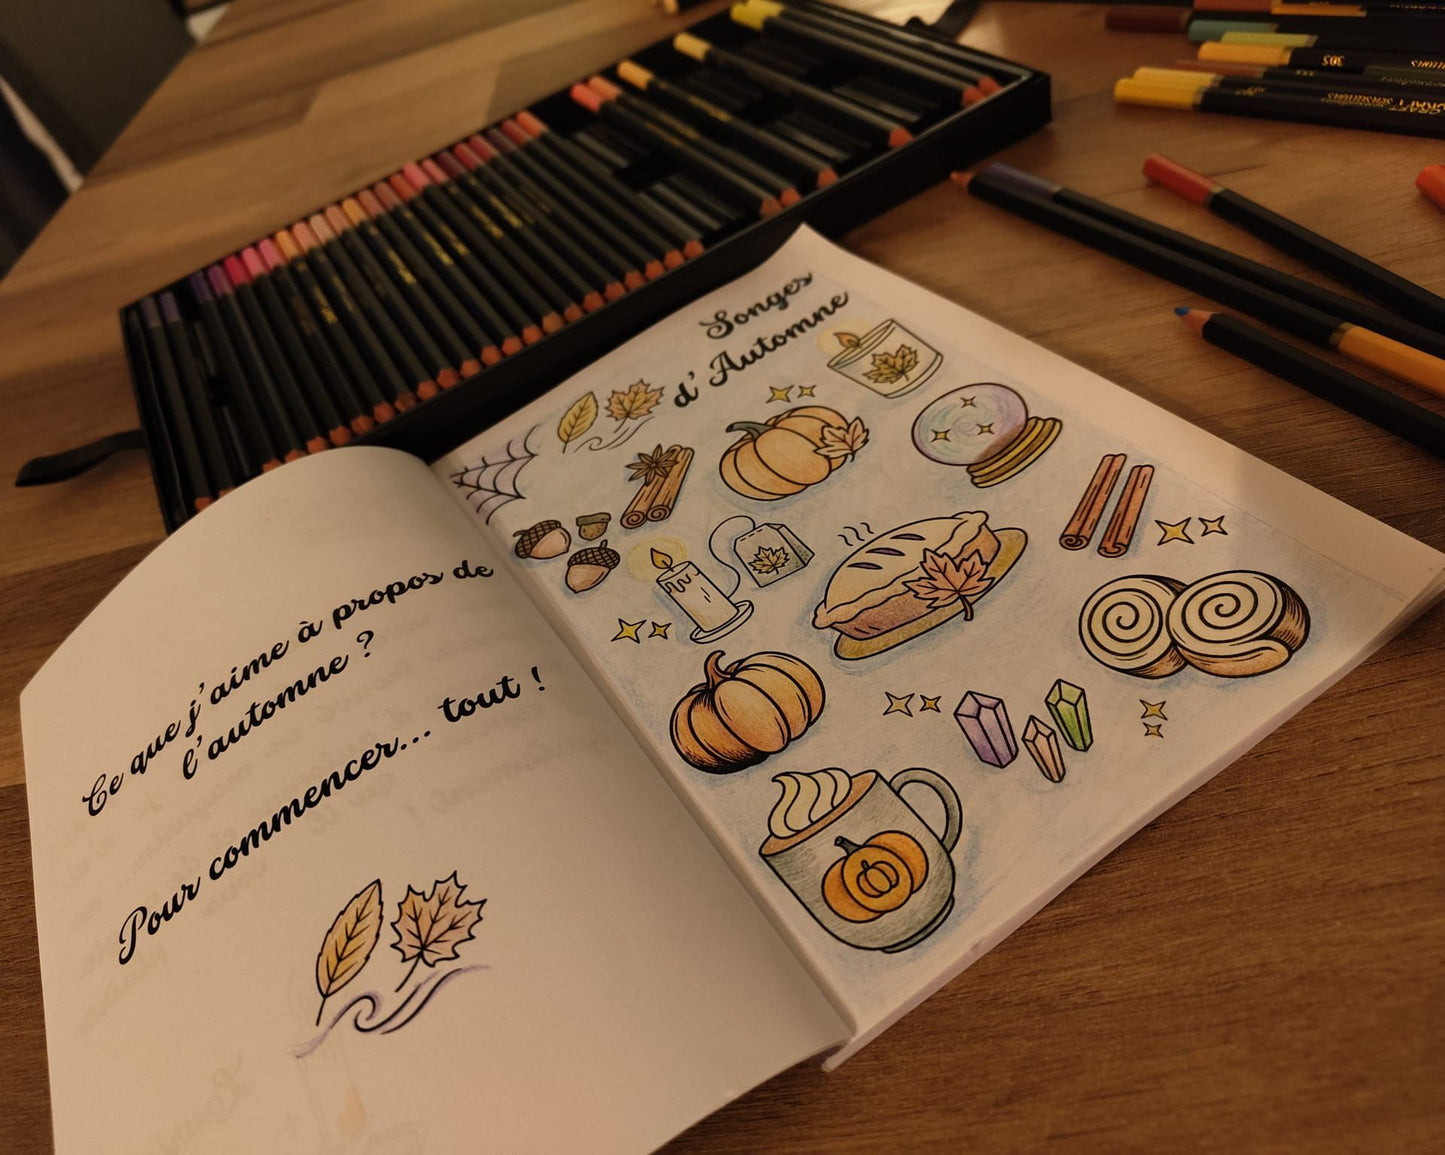 Ce que j'aime à propos de
l'automne ?
Pour commencer... tout !
Songes
d'Automne
305
CRAFT